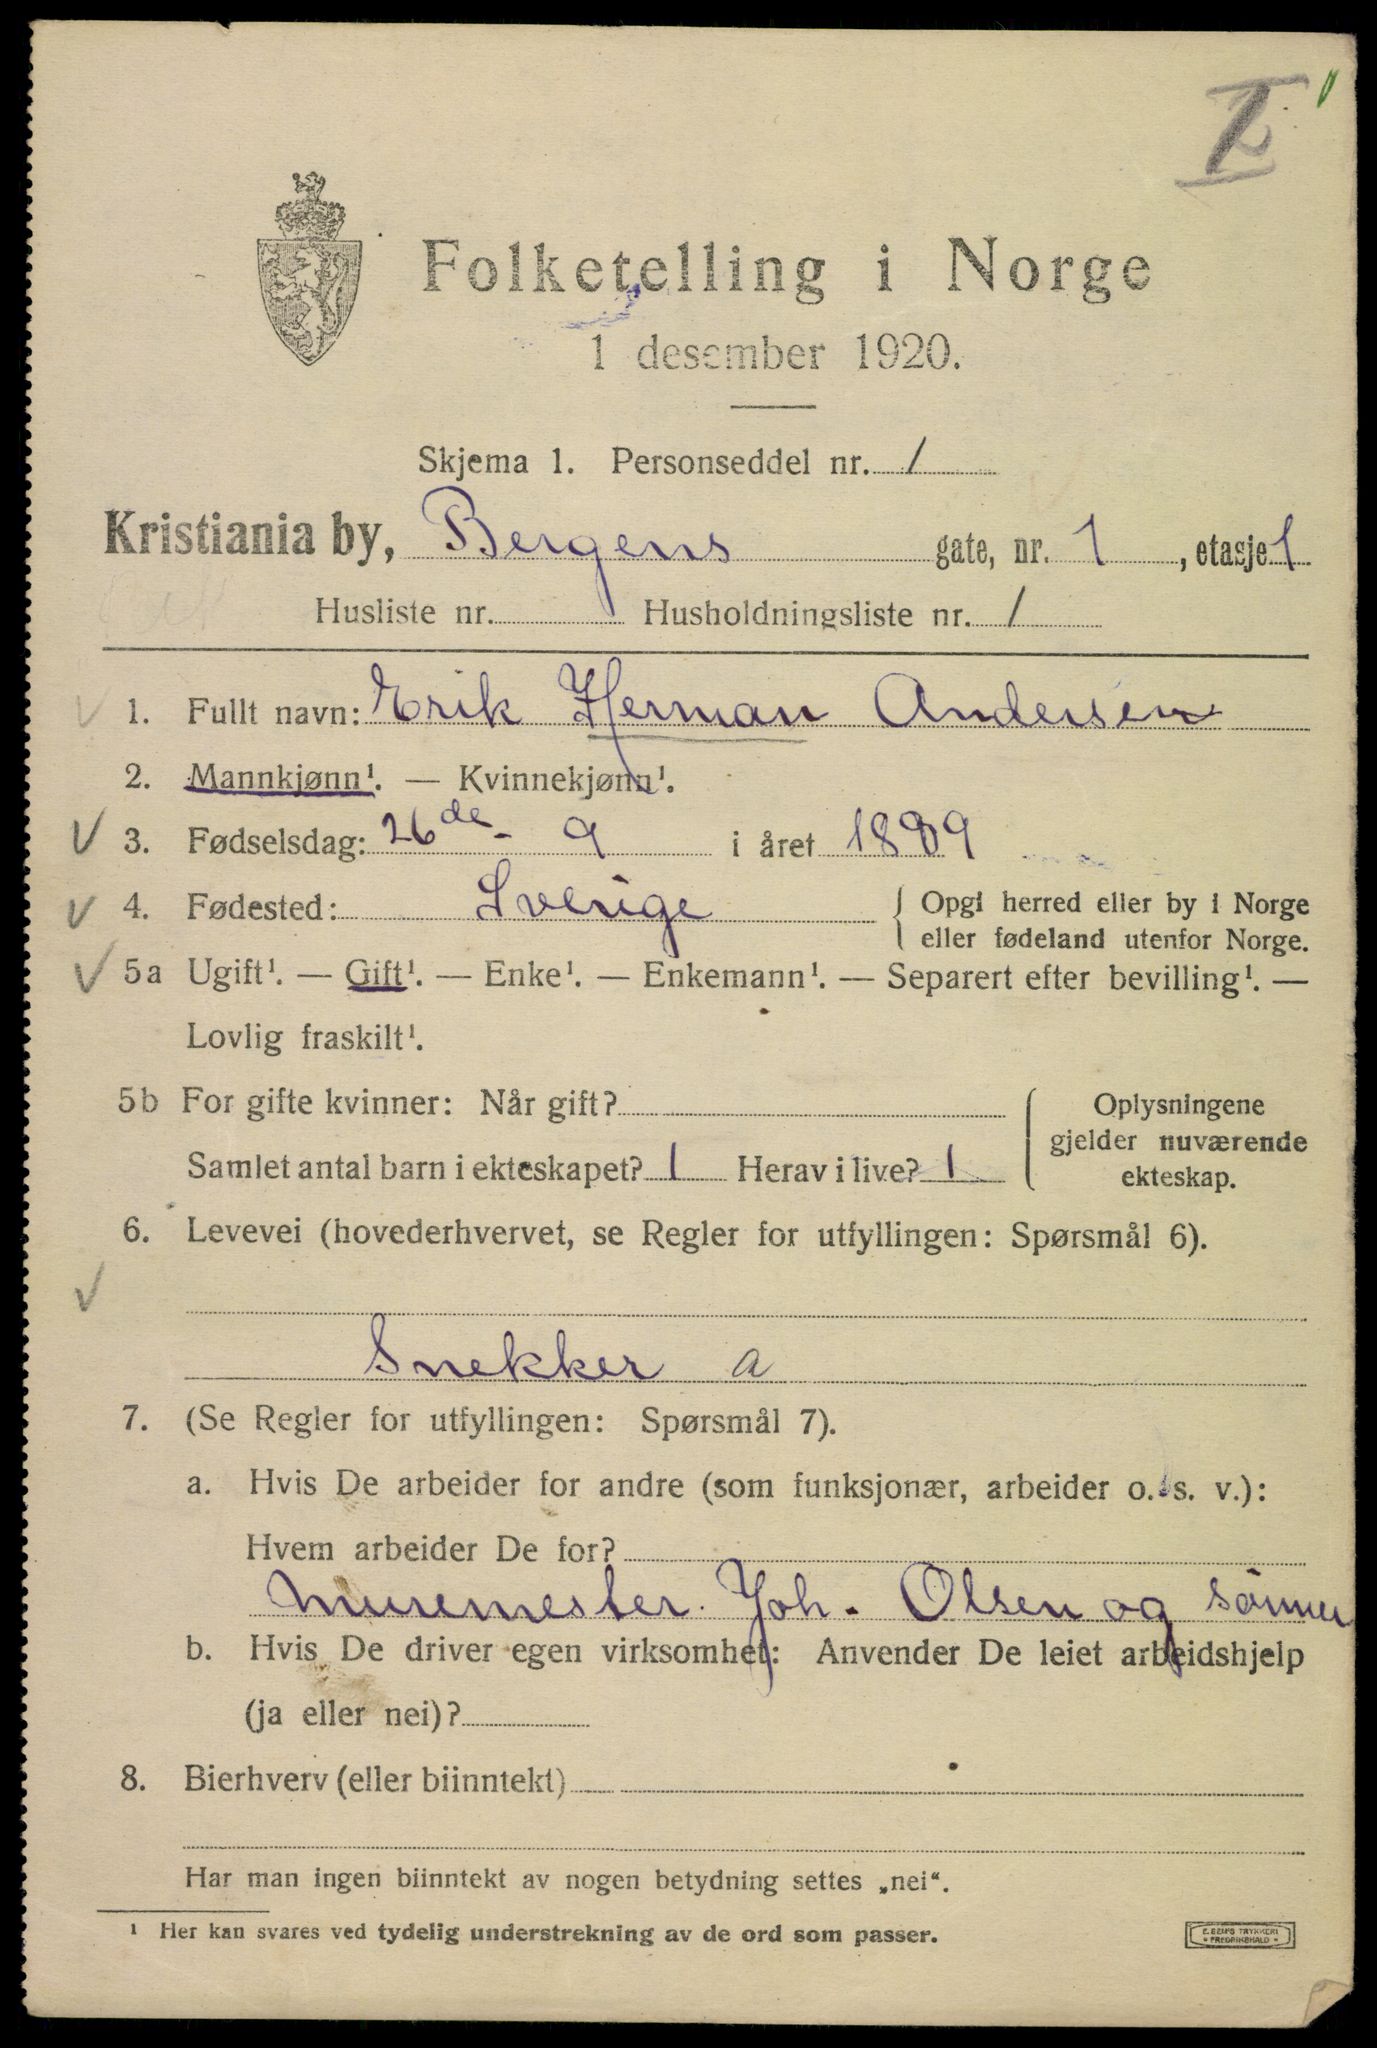 I
Folketelling i Norge
1 desember 1920.
Skjema 1. Personseddel nr. 1
Kristiania by, Bergens gate, nr. 1, etasje 1
Husliste nr. Husholdningsliste nr. 1
1. Fullt navn: Erik Herman Andersen
2. Mannkjønn¹. — Kvinnekjønn¹.
3. Fødselsdag: 26de- 9 i året 1889
4. Fødested: Sverige { Opgi herred eller by i Norge
eller fødeland utenfor Norge.
5a Ugift¹. — Gift¹. — Enke¹. — Enkemann¹. — Separert efter bevilling¹. —
Lovlig fraskilt¹.
5b For gifte kvinner: Når gift? { Oplysningene
gjelder nuværende
Samlet antal barn i ekteskapet? 1 Herav i live? 1 ekteskap.
6. Levevei (hovederhvervet, se Regler for utfyllingen: Spørsmål 6).
Snekker a
7. (Se Regler for utfyllingen: Spørsmål 7).
a. Hvis De arbeider for andre (som funksjonær, arbeider o. s. v.):
Hvem arbeider De for?
Muremester. Joh. Olsen og sönner
b. Hvis De driver egen virksomhet: Anvender De leiet arbeidshjelp
(ja eller nei)?
8. Bierhverv (eller biinntekt)
Har man ingen biinntekt av nogen betydning settes „nei“.
¹ Her kan svares ved tydelig understrekning av de ord som passer.
E. SEM'S TRYKKERI
* FREDRIKSHALD *